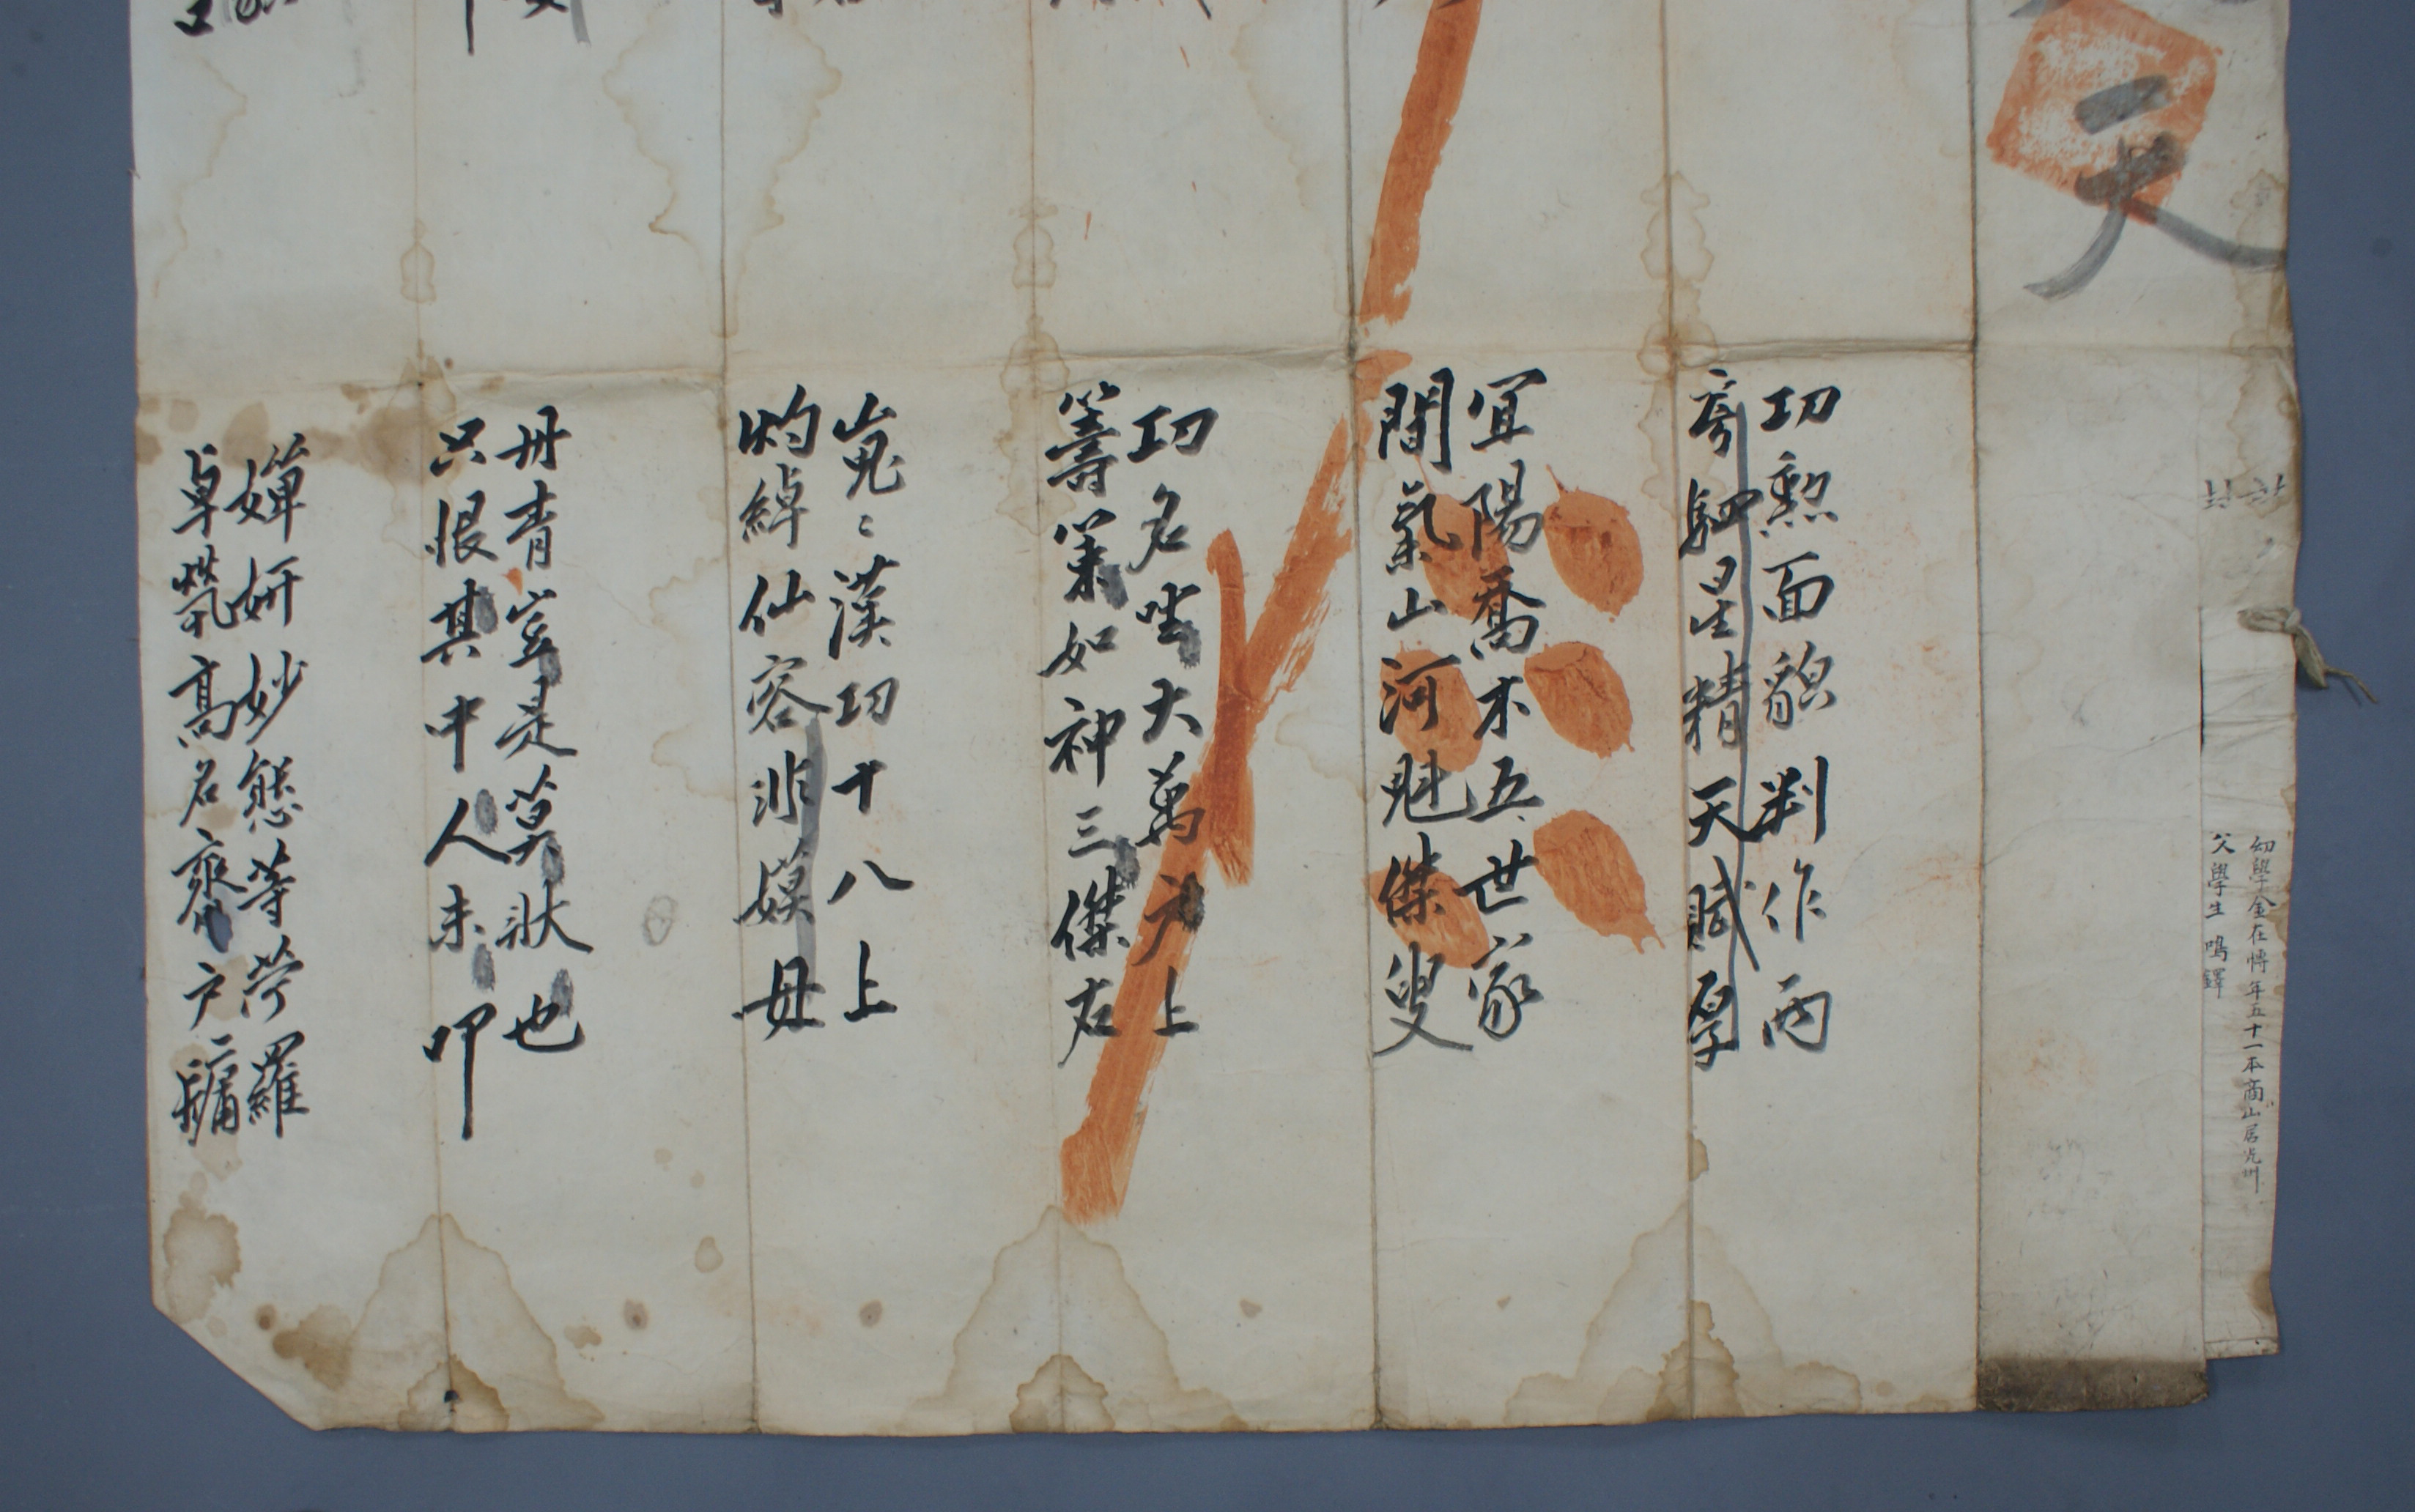 天
幼學金在愽年五十一本商山居光州
父學生鳴鐸
功勲面貌判作两
奇驷星精天賦厚
宜陽喬木五世家
間氣山河魁傑叟
功名坐大萬户上
籌策如神三傑右
嵬〻漢功十八上
灼綽仙容非嫫母
丹青豈是莫狀也
只恨其中人未叩
嬋姸妙態等苧羅
卓犖髙名齊户牖